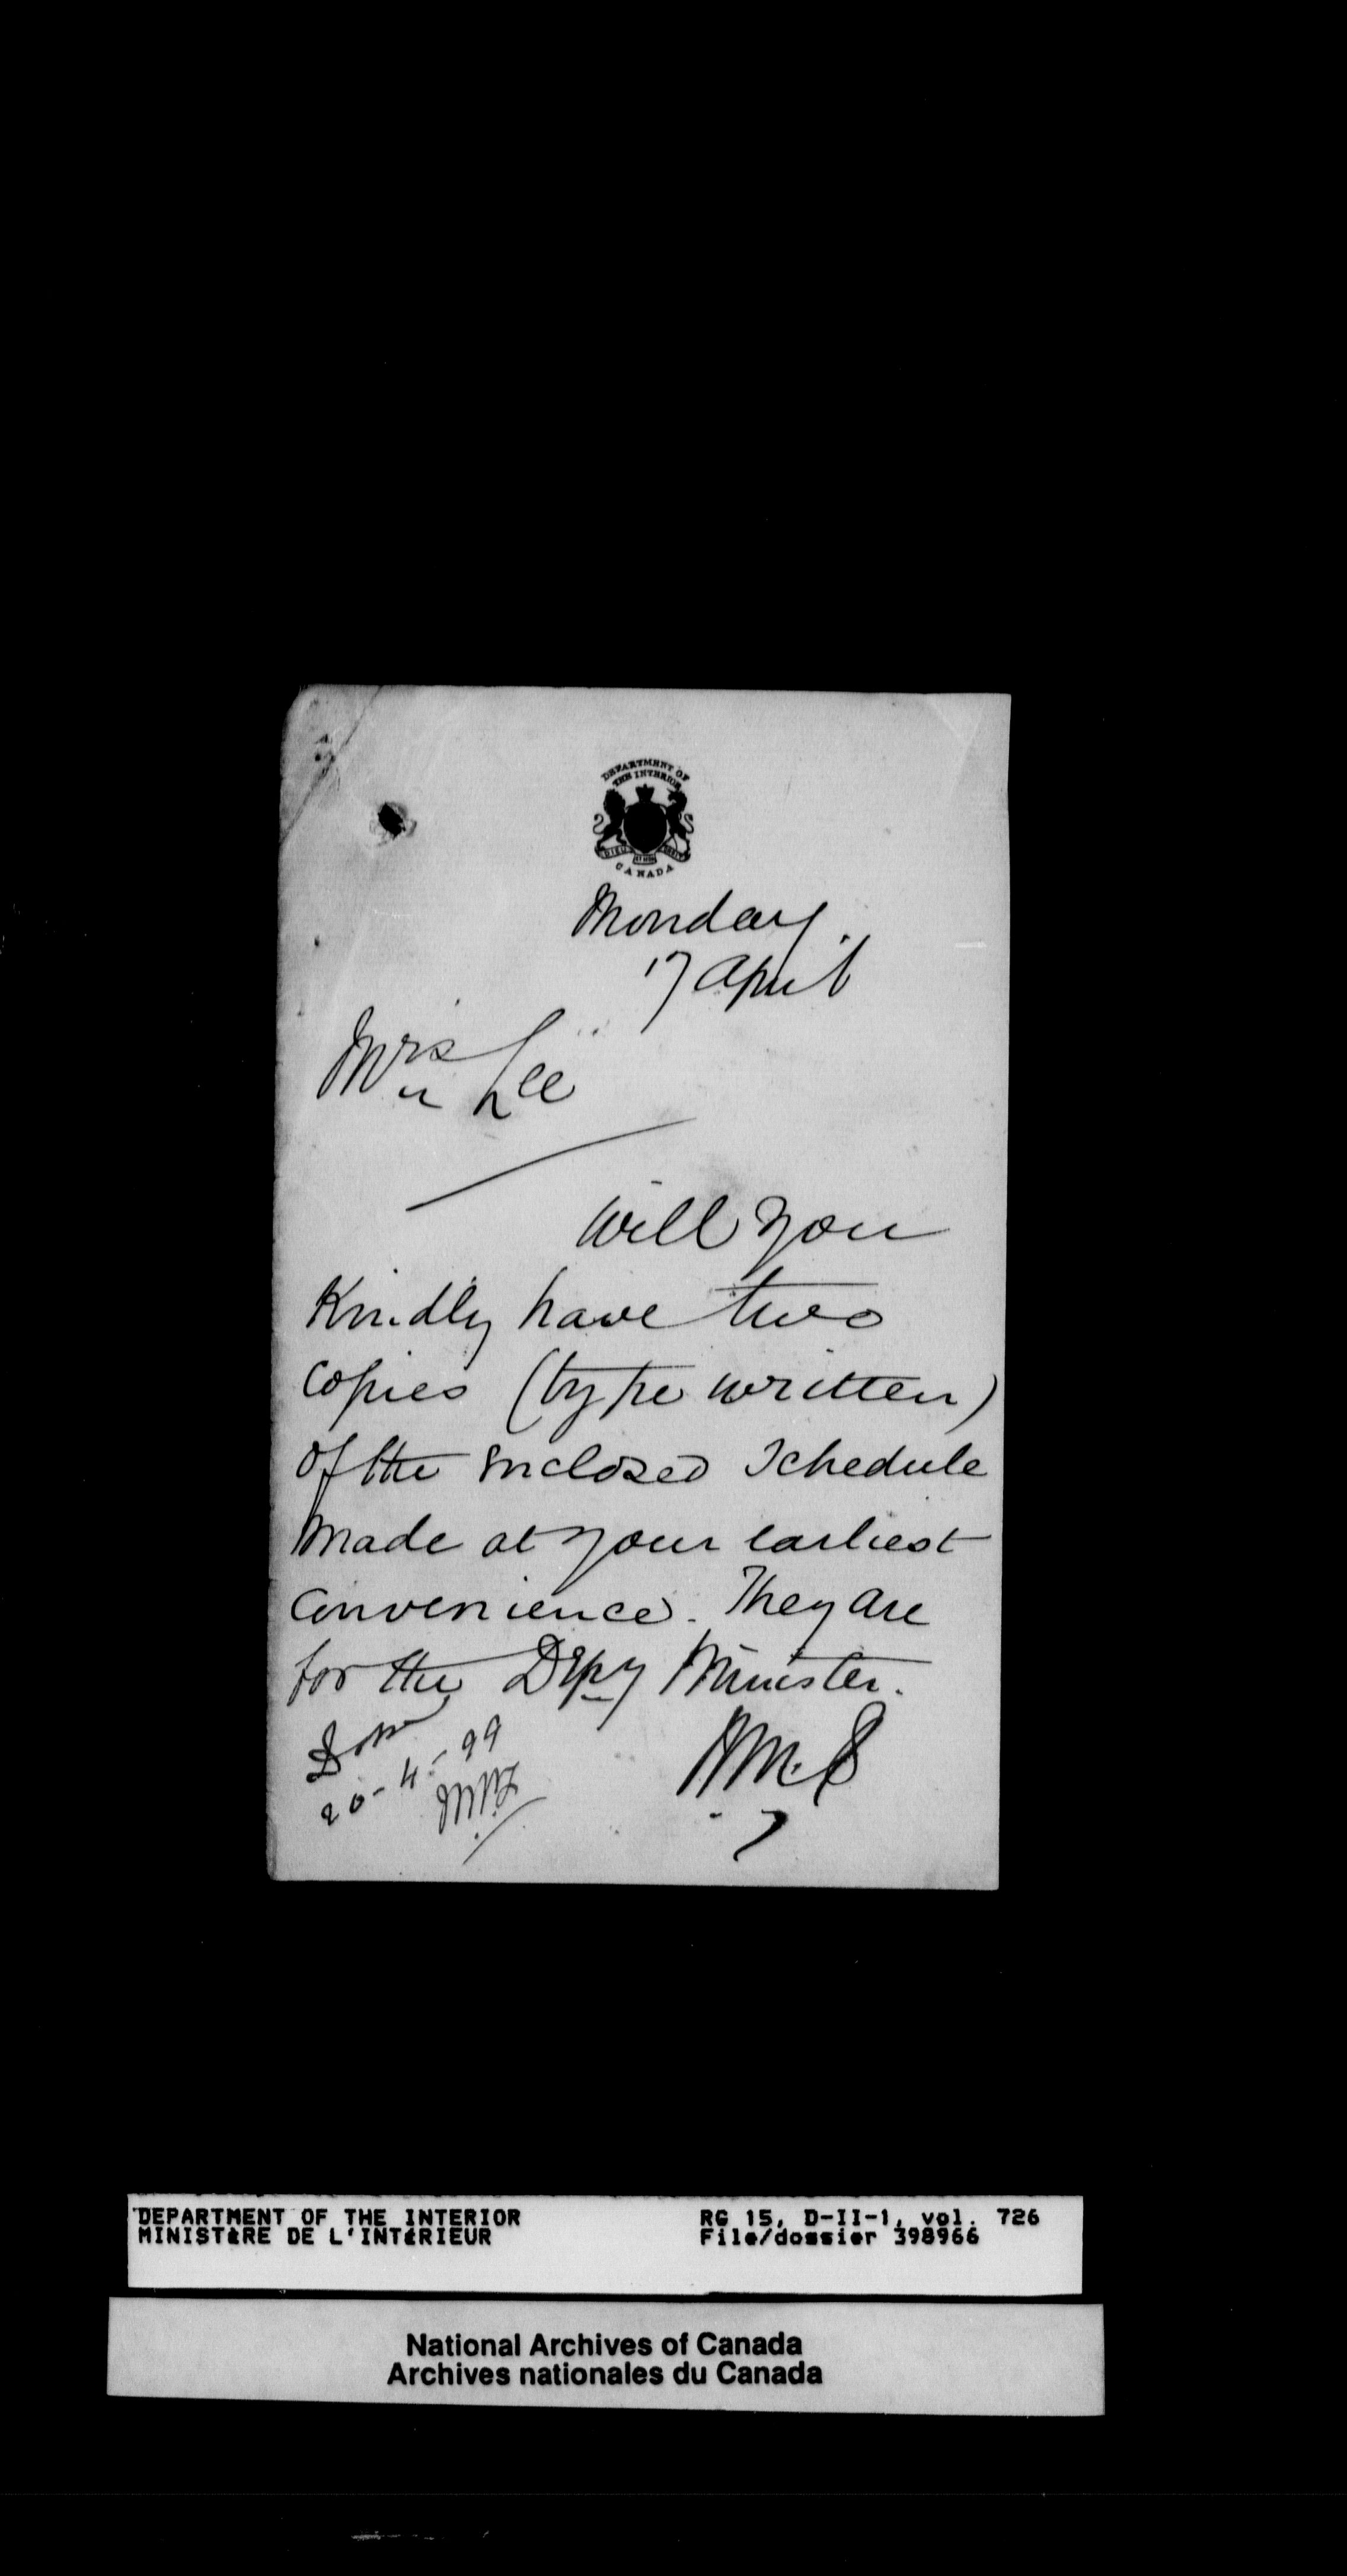 DEPARTMENT OF
THE INTERIOR
DIEU ET MON DROIT
CANADA
Monday.
17 April
Mrs Lee
Will you
Kindly have two
copies (type written)
of the enclosed schedule
made at your earliest
convenience. They are
for the Depy Minister.
20-4-99
DEPARTMENT OF THE INTERIOR
MINISTÈRE DE L'INTÉRIEUR
RG 15, D-II-1, vol. 726
File/dossier 398966
National Archives of Canada
Archives nationales du Canada